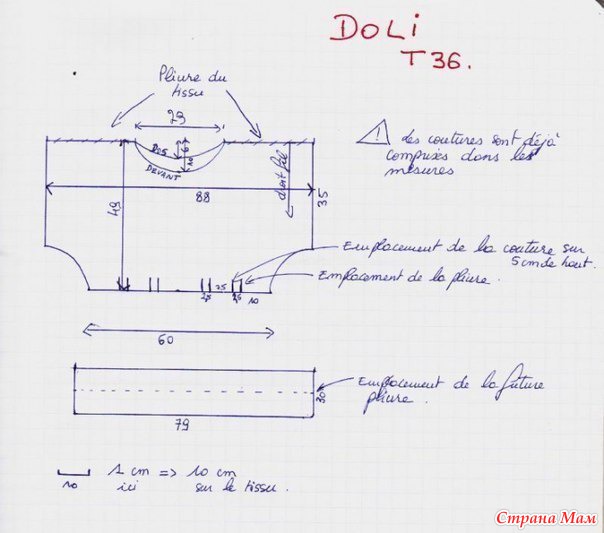 DOLI
T36.
Pliure du
tissu
29
⚠ les coutures sont déjà
comprises dans les
mesures
DOS
6
DEVANT
10
droit fil
35
88
49
Emplacement de la couture sur
5cm de haut.
Emplacement de la pliure.
25
10
60
Emplacement de la future
pliure.
30
79
1 cm => 10 cm
10
ici
sur le tissu.
Страна Мам